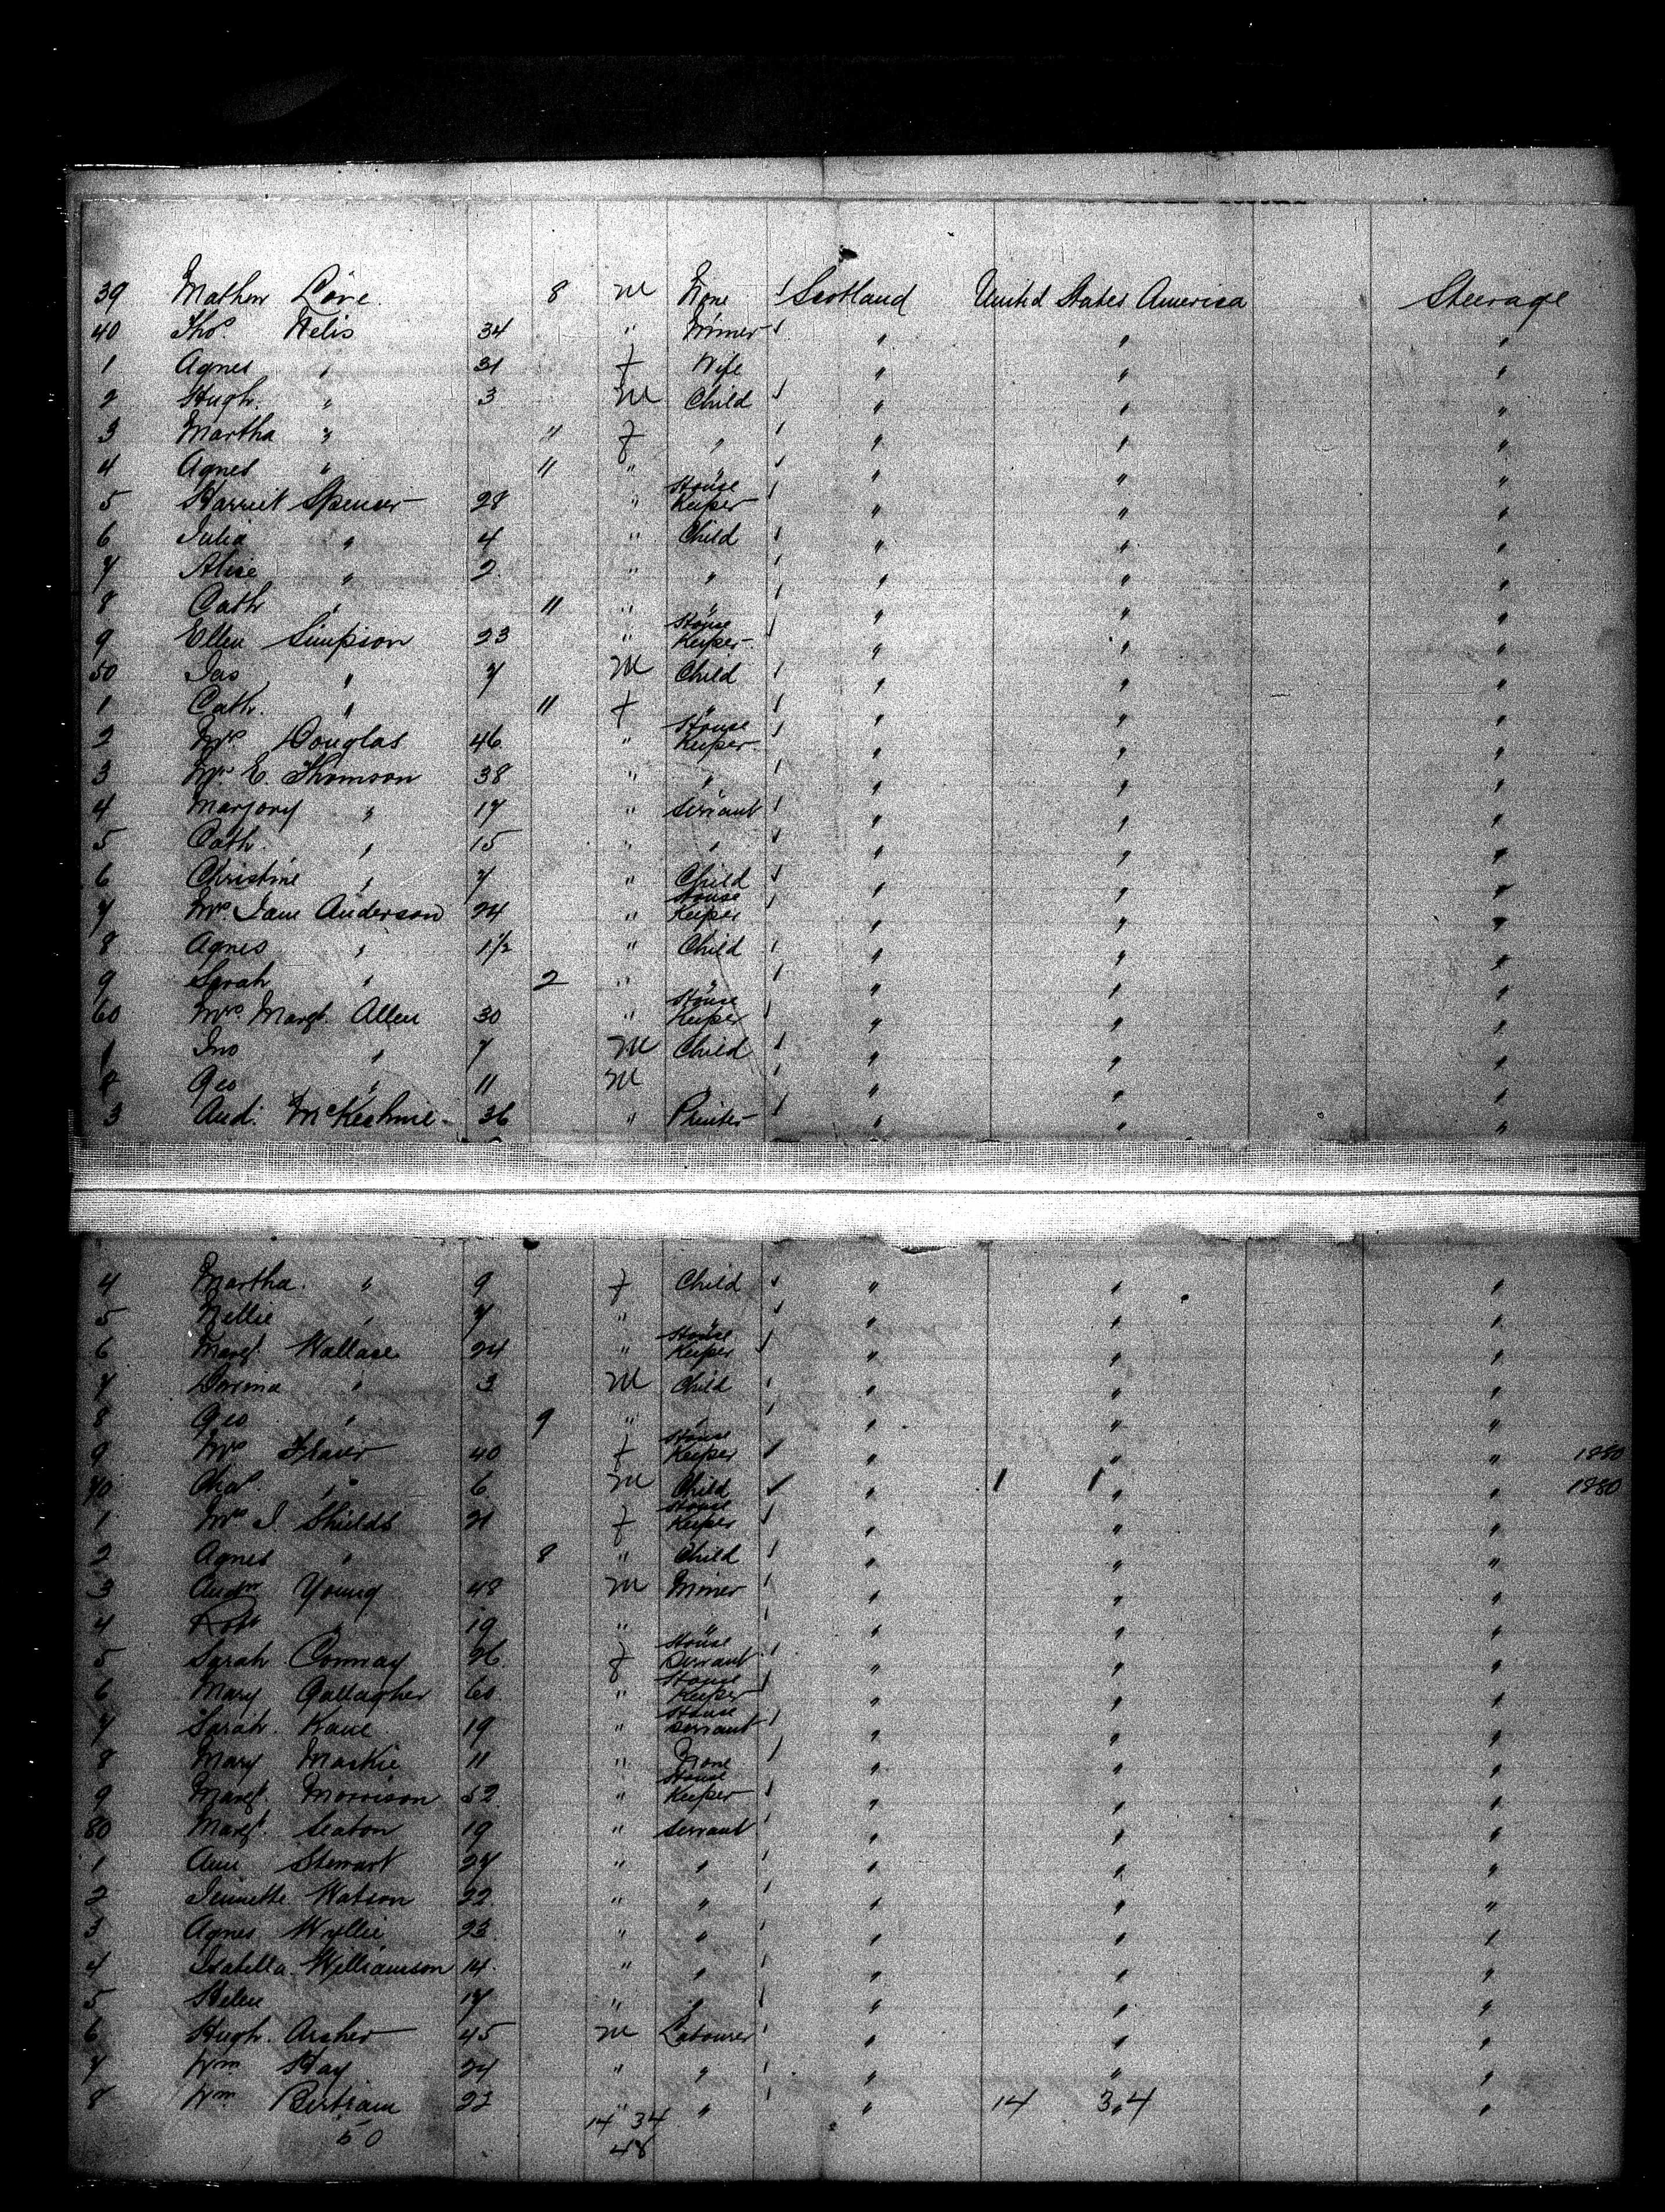 39 Mathew Love 8 M None 1 Scotland United States America Steerage
40 Thos. Nelis 34 " Miner 1 " " "
1 Agnes " 31 f Wife " " "
2 Hugh " 3 M Child 1 " " "
3 Martha " 11 f " 1 " " "
4 Agnes " 11 " " 1 " " "
5 Harriet Spencer 28 " House Keeper 1 " " "
6 Julia " 4 " Child 1 " " "
7 Alice " 2 " " 1 " " "
8 Cath " 11 " " 1 " " "
9 Ellen Simpson 23 " House Keeper 1 " " "
50 Jas " 7 M Child 1 " " "
1 Cath. " 11 f " 1 " " "
2 Mrs Douglas 46 " House Keeper 1 " " "
3 Mrs E. Thomson 38 " " 1 " " "
4 Marjory " 17 " Servant 1 " " "
5 Cath. " 15 " " 1 " " "
6 Christine " 7 " Child 1 " " "
7 Mrs Jane Anderson 24 " House Keeper 1 " " "
8 Agnes " 1 1/2 " Child 1 " " "
9 Sarah " 2 " " 1 " " "
60 Mrs Margt. Allen 30 " House Keeper 1 " " "
1 Jno " 7 M Child 1 " " "
2 Geo " 11 M " 1 " " "
3 And. 36 " 1 " " "
4 Martha " 9 f Child 1 " " "
5 Nellie " 7 " " 1 " " "
6 Margt. Wallace 24 " House Keeper 1 " " "
7 " 3 M Child 1 " " "
8 Geo " 9 " " 1 " " "
9 Mrs 40 f House Keeper 1 " " 1880
70 Chas. " 6 M Child 1 " 1 1 " " 1880
1 Mrs J. Shields 21 f House Keeper 1 " " "
2 Agnes " 8 " Child 1 " " "
3 Andw Young 48 M Miner 1 " " "
4 Robt " 19 " " 1 " " "
5 Sarah 26 f House Servant 1 " " "
6 Mary Gallagher 60 " House Keeper 1 " " "
7 Sarah Kane 19 " House Servant 1 " " "
8 Mary Mackie 11 " None 1 " " "
9 Margt. Morrison 52 " House Keeper 1 " " "
80 Margt. Seaton 19 " Servant 1 " " "
1 Ann Stewart 27 " " 1 " " "
2 Jennette Watson 22 " " 1 " " "
3 Agnes Wyllie 23 " " 1 " " "
4 Isabella Williamson 14 " " 1 " " "
5 Helen 17 " " 1 " " "
6 Hugh Archer 45 M Labourer 1 " " "
7 Wm Hay 24 " " 1 " " "
8 Wm Bertram 22 " " 1 " 14 34 "
50 14 34
48